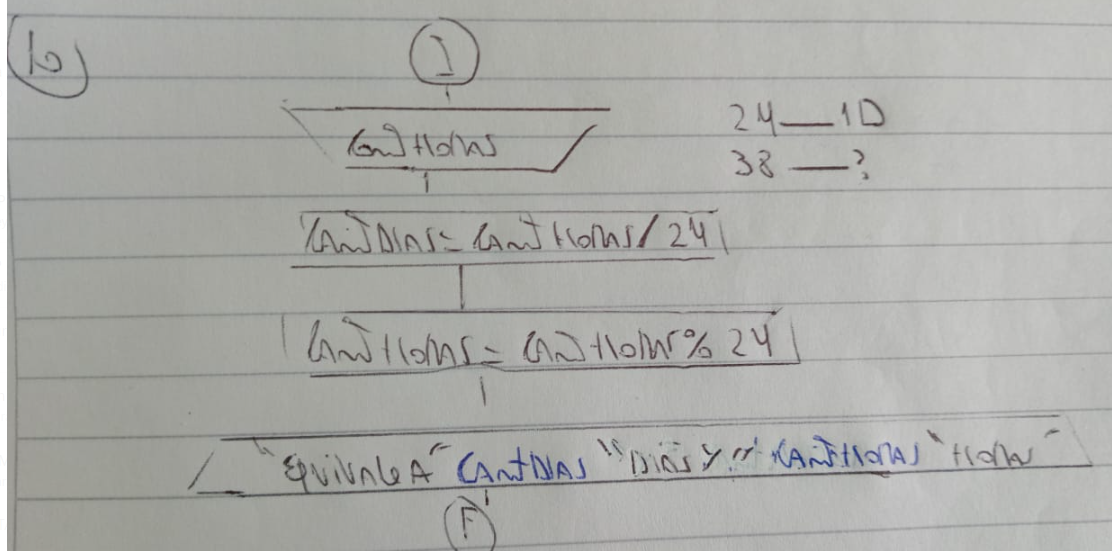 b)
I
CantHoras
24 — 1D
38 — ?
CantDias = CantHoras / 24
CantHoras = CantHoras % 24
"Equivale A" CantDias "Dias y" CantHoras "Horas"
F